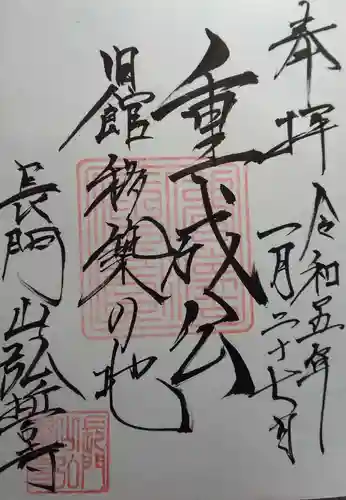 奉拝
令和五年
一月二十七日
重成公
旧館移築の地
長門 弘誓寺
長門